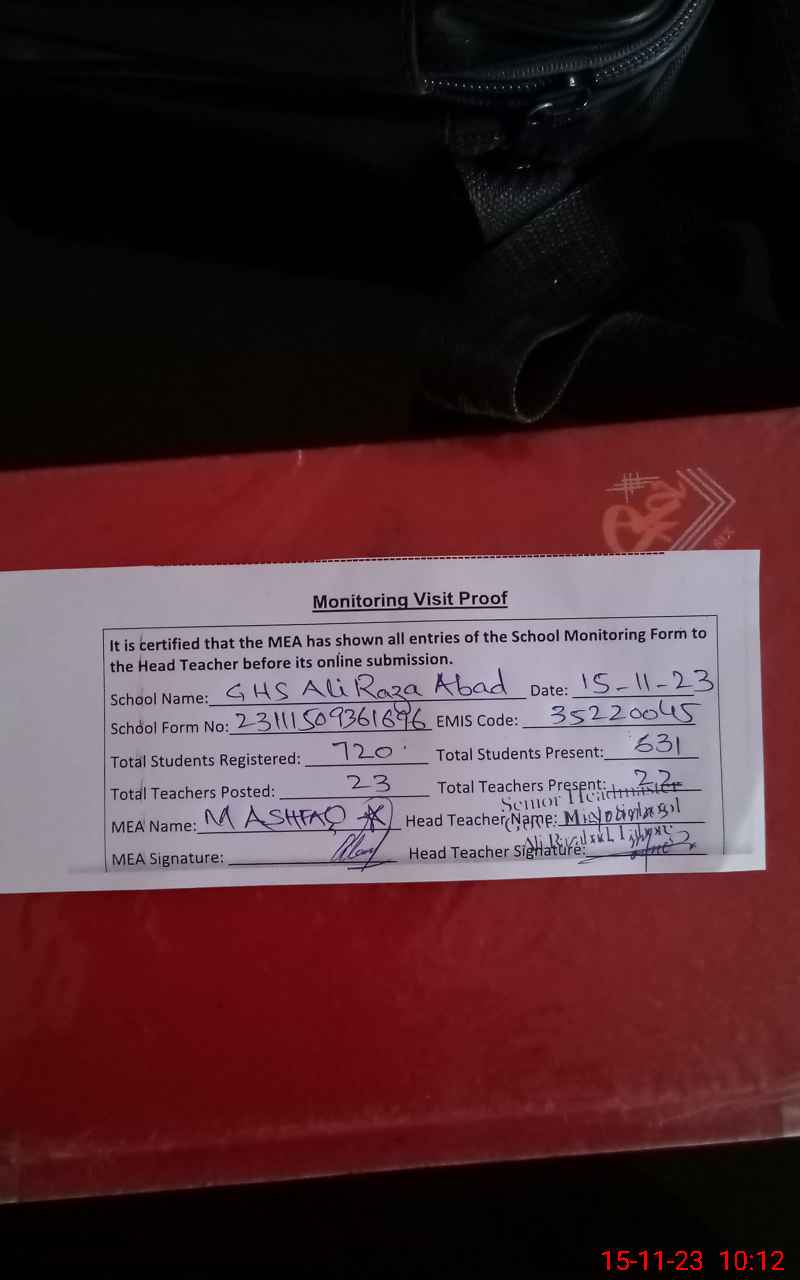 Monitoring Visit Proof
It is certified that the MEA has shown all entries of the School Monitoring Form to
the Head Teacher before its online submission.
School Name: GHS Ali Raza Abad Date: 15-11-23
School Form No: 23111509361696 EMIS Code: 35220045
Total Students Registered: 720 Total Students Present: 631
Total Teachers Posted: 23 Total Teachers Present: 22
Senior Headmaster
MEA Name: M ASHFAQ Head Teacher Name:
MEA Signature: Head Teacher Signature:
15-11-23 10:12